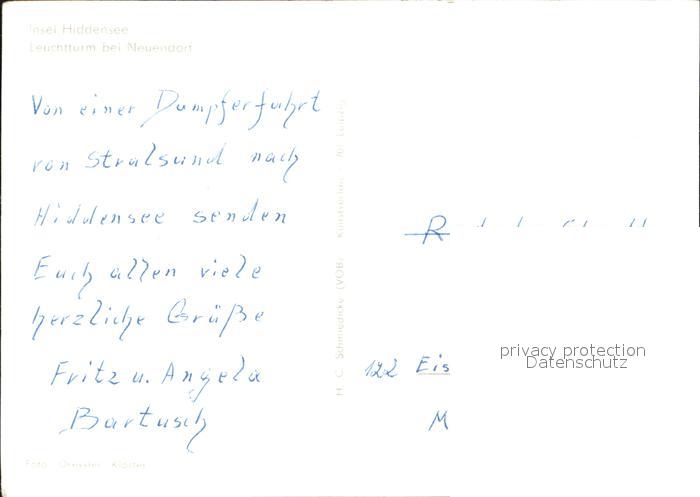 Insel Hiddensee
Leuchtturm bei Neuendorf
Von einer Dampferfahrt
von Stralsund nach
Hiddensee senden
Euch allen viele
herzliche Grüße
Fritz u. Angela
Bartusch
Foto: Dressler, Kloster
H. C. Schmiedicke (VOB) Kunstverlag, 701 Leipzig
R
122 Eis
M
privacy protection
Datenschutz